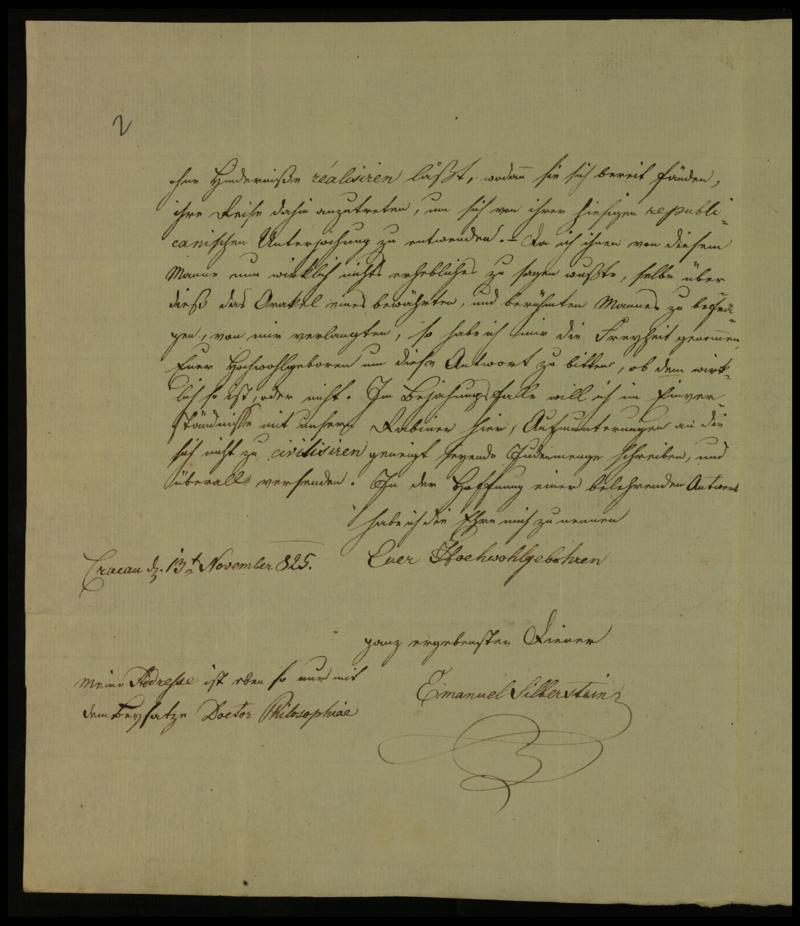 2
ohne Hinderniße réalisiren läßt, wodan sie sich bereit fänden,
ihre Reise dahin anzutreten, um sich von ihrer hiesigen republi-
canischen Unterjochung zu entwenden. – Da ich ihnen von diesem
Manne nun wirklich nichts erhebliches zu sagen wußte, selbe über
dieß das Orakel eines bewährten, und berühmten Mannes zu befra-
gen, von mir verlangten, so habe ich mir die Freyheit genommen,
Euer Hochwohlgeboren um diese Antwort zu bitten, ob dem wirk-
lich so ist, oder nicht. Im Bejahungsfalle will ich im Einver-
ständnisse mit unserm Rabiner hier, Aufmunterungen an die
sich nicht zu civilisiren geneigt seyende Judenmenge schreiben, und
überall versenden. In der Hoffnung einer belehrenden Antwort
habe ich die Ehre mich zu nennen
Cracau d. 13t November 825.
Euer Hochwohlgebohren
ganz ergebenster Diener
Emanuel Silberstein
meine Addresse ist eben so nur mit
dem Beysatze Doctor Philosophiae